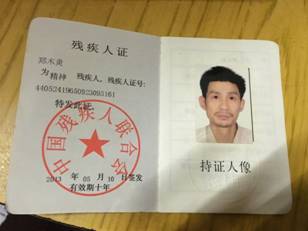 残疾人证
郑木炎
为 精神 残疾人，残疾人证号：
44052419650923093161
特发此证。
中国残疾人联合会
2013 年 05 月 10 日签发
有效期十年
持证人像